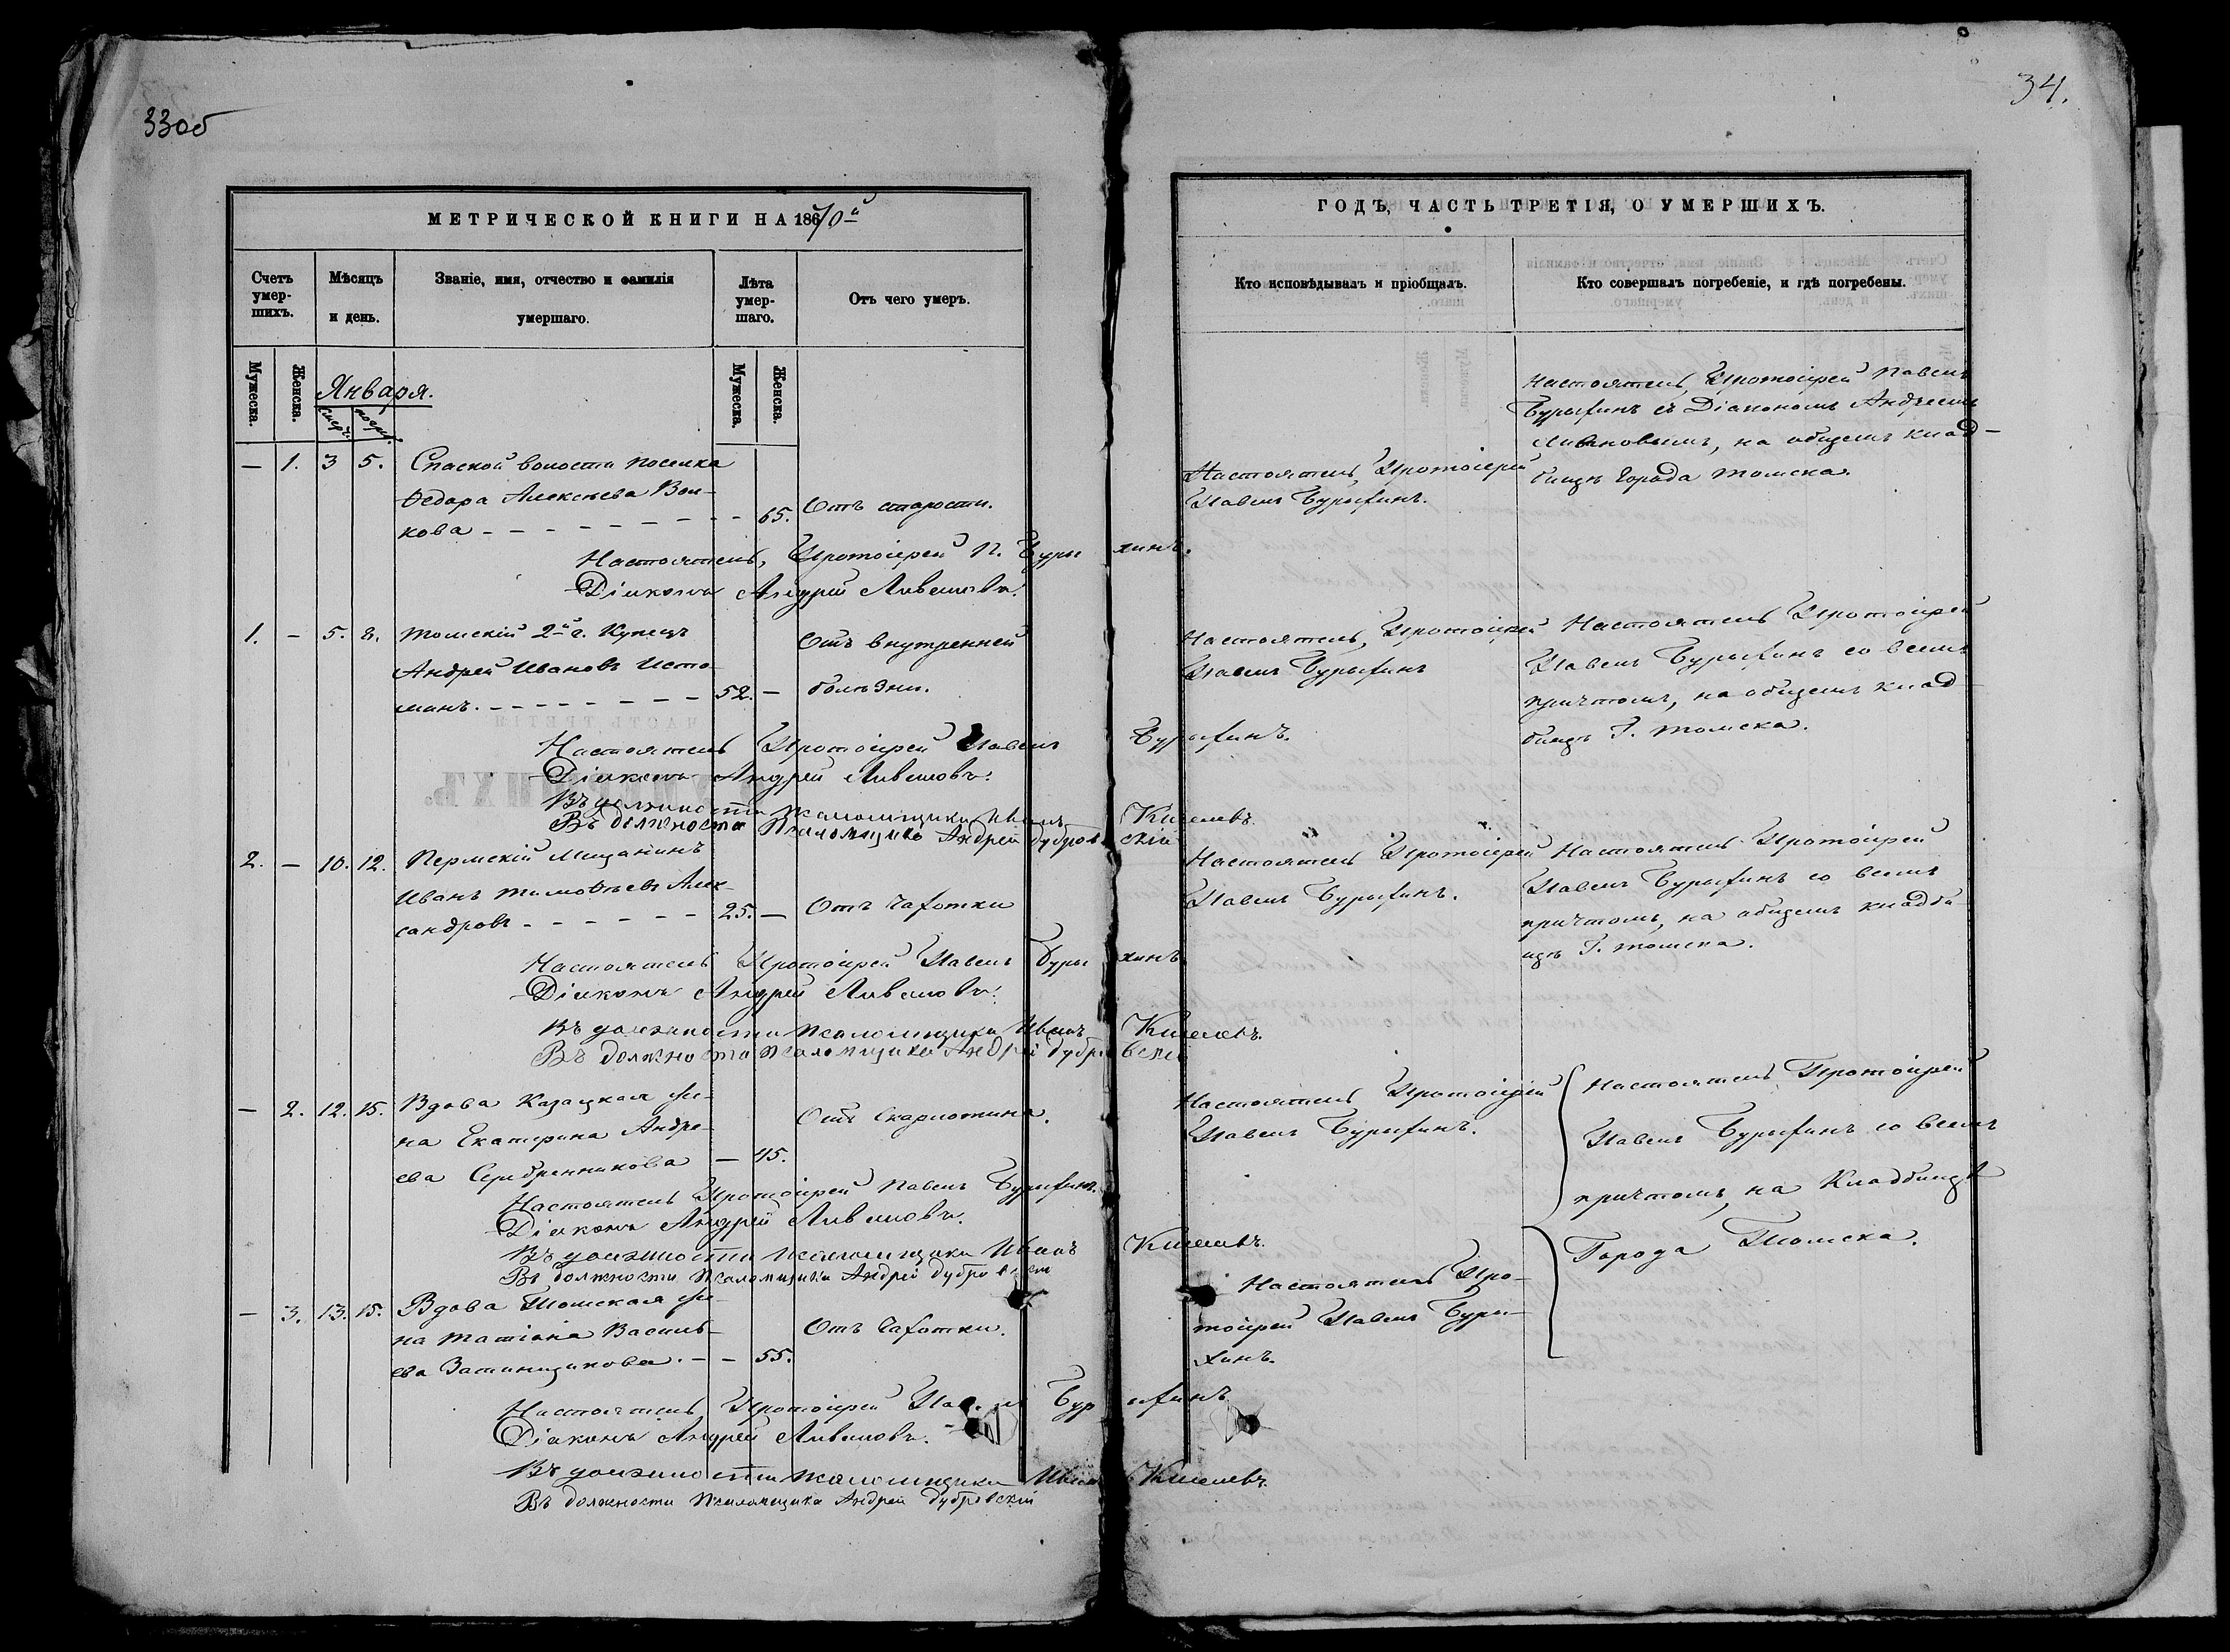 33об
34.
МЕТРИЧЕСКОЙ КНИГИ НА 1870й
ГОДЪ, ЧАСТЬ ТРЕТІЯ, О УМЕРШИХЪ.
Счетъ умер-шихъ.
Мѣсяцъ и день.
Званіе, имя, отчество и фамилія умершаго.
Лѣта умер-шаго.
Отъ чего умеръ.
Кто исповѣдывалъ и пріобщалъ.
Кто совершалъ погребеніе, и гдѣ погребены.
Мужеска.
Женска.
Января.
смер.
погр.
Мужеска.
Женска.
— 1. 3 5. Спаской волости поселка
Ѳедора Алексѣева Вол-
кова — 65. Отъ старости.
Настоятель, Протоіерей
Павелъ Бурыхинъ.
Настоятель, Протоіерей Павелъ
Бурыхинъ съ Діакономъ Андреемъ
Ливановымъ, на общемъ клад-
бищѣ Города Томска.
Настоятель, Протоіерей П. Бурыхинъ.
Діаконъ Андрей Ливановъ.
1. — 5. 8. Томскій 2й г. Купецъ
Андрей Ивановъ Исто-
минъ. — 52. — Отъ внутренней
болѣзни.
Настоятель, Протоіерей
Павелъ Бурыхинъ
Настоятель Протоіерей
Павелъ Бурыхинъ со всемъ
причтомъ, на общемъ клад-
бищѣ Г. Томска.
Настоятель Протоіерей Павелъ Бурыхинъ.
Діаконъ Андрей Ливановъ.
Въ должности Псаломщика Иванъ Киселевъ.
Въ должности Псаломщика Андрей Дубровскій
2. — 10. 12. Пермскій Мещанинъ
Иванъ Тимофѣевъ Алек-
сандровъ — 25. — Отъ Чахотки
Настоятель Протоіерей
Павелъ Бурыхинъ.
Настоятель Протоіерей
Павелъ Бурыхинъ со всемъ
причтомъ, на общемъ кладби-
щѣ Г. Томска.
Настоятель Протоіерей Павелъ Бурыхинъ
Діаконъ Андрей Ливановъ.
Въ должности Псаломщика Иванъ Киселевъ.
Въ должности Псаломщика Андрей Дубровскій
— 2. 12. 15. Вдова Казацкая же-
на Екатерина Андре-
ева Серебренникова — 45. Отъ Скарлотина.
Настоятель Протоіерей
Павелъ Бурыхинъ.
Настоятель Протоіерей
Павелъ Бурыхинъ со всемъ
причтомъ, на Кладбищѣ
Города Томска.
Настоятель Протоіерей Павелъ Бурыхинъ.
Діаконъ Андрей Ливановъ.
Въ должности Псаломщика Иванъ Киселевъ.
Въ должности Псаломщика Андрей Дубровскій
— 3. 13. 15. Вдова Томская же-
на Татіана Василь-
ева — 55. Отъ Чахотки.
Настоятель Про-
тоіерей Павелъ Буры-
хинъ.
Настоятель Протоіерей Павелъ Бурыхинъ
Діаконъ Андрей Ливановъ.
Въ должности Псаломщика Иванъ Киселевъ.
Въ должности Псаломщика Андрей Дубровскій